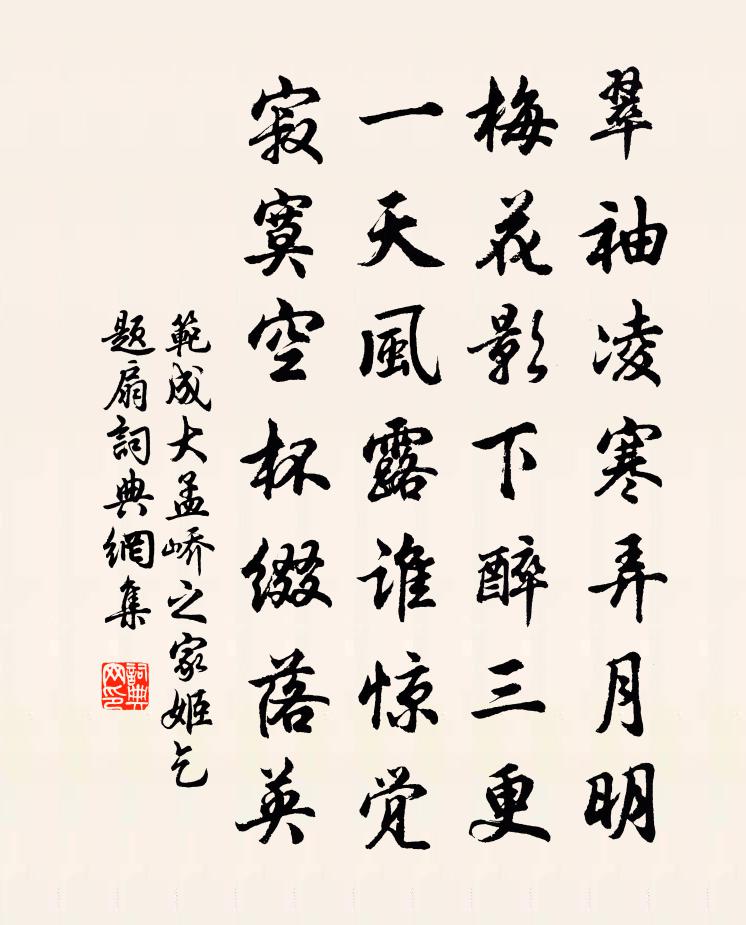 翠袖凌寒弄月明
梅花影下醉三更
一天風露谁惊觉
寂寞空杯缀落英
範成大孟峤之家姬乞
题扇詞典網集
詞典
网印